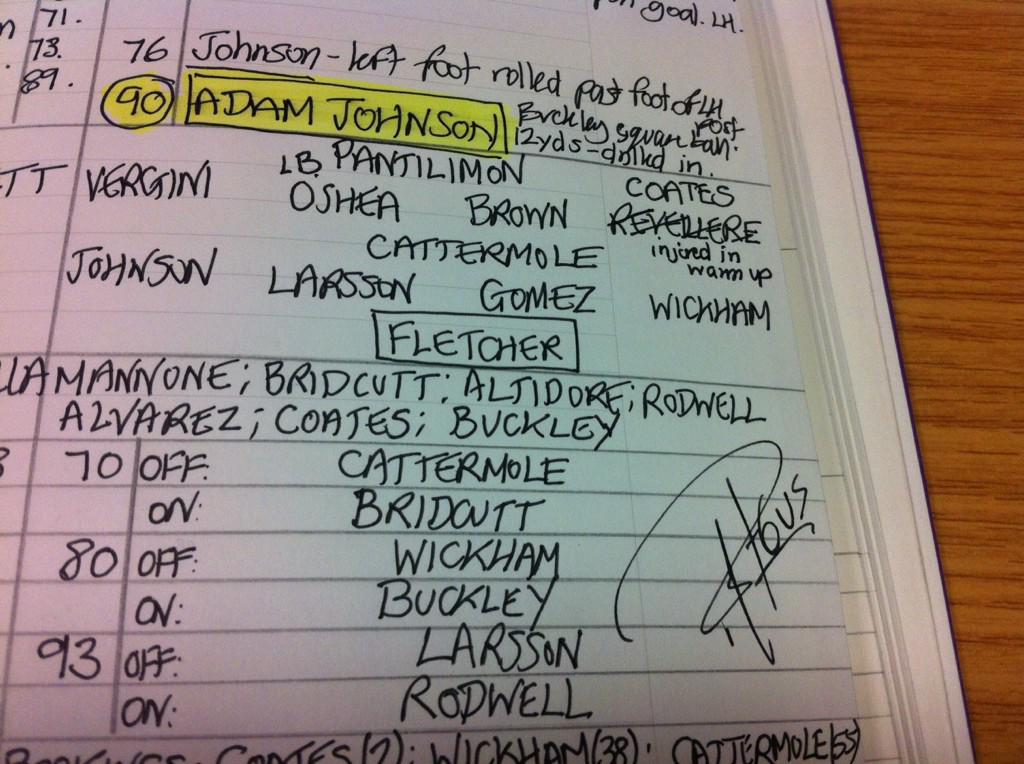 71.
goal. LH.
73. 76 Johnson - left foot rolled past foot of LH post
89.
90 ADAM JOHNSON Buckley square ball.
12yds - drilled in.
LB. PANTILIMON
TT VERGINI OSHEA BROWN COATES
REVEILLERE
injured in
warm up
CATTERMOLE
JOHNSON LARSSON GOMEZ WICKHAM
FLETCHER
MANNONE; BRIDCUTT; ALTIDORE; RODWELL
ALVAREZ; COATES; BUCKLEY
70 OFF: CATTERMOLE
ON: BRIDCUTT
80 OFF: WICKHAM
ON: BUCKLEY
93 OFF: LARSSON
ON: RODWELL
BOOKINGS - COATES (7); WICKHAM (38); CATTERMOLE (55)